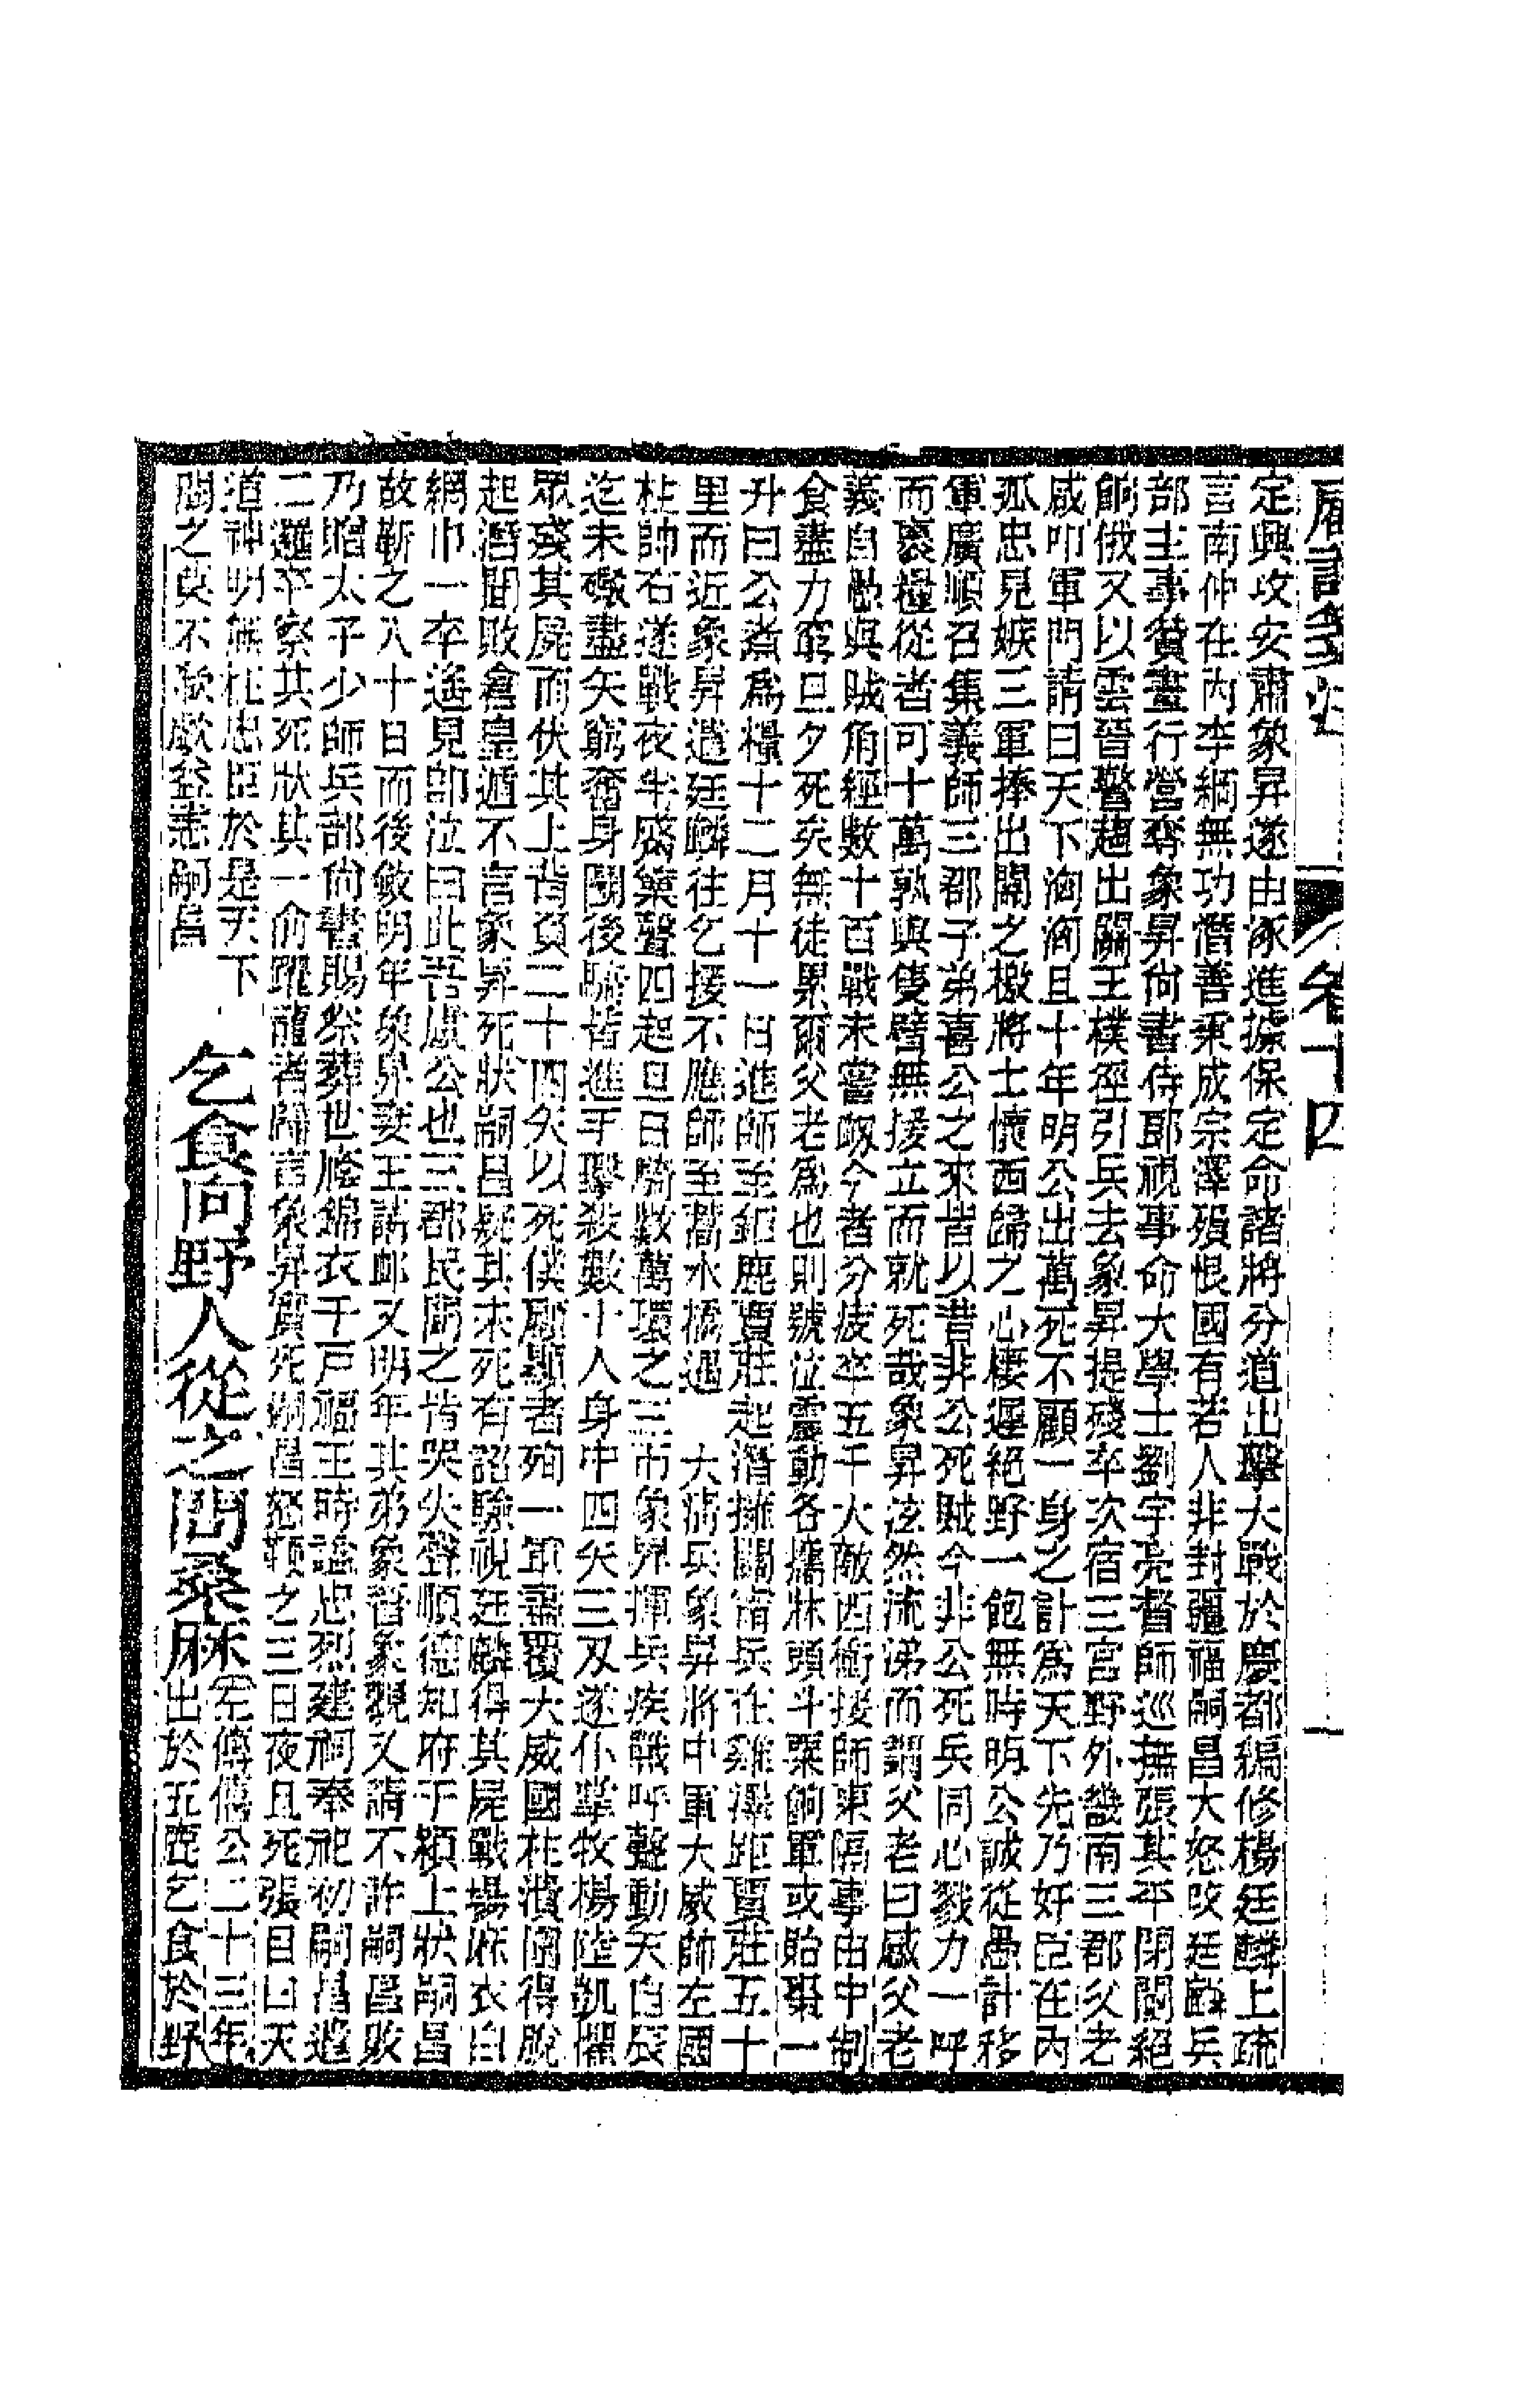 卷十四
定興攻安肅象昇遂由涿進據保定命諸將分道出擊大戰於慶都編修楊廷麟上疏
言南仲在內李綱無功潛善秉成宗澤殞恨國有若人非封疆福嗣昌大怒改廷麟兵
部主事贊畫行營奪象昇尚書侍郎視事命大學士劉宇亮督師巡撫張其平閉關絕
餉俄又以雲晉警趨出關王樸徑引兵去象昇提殘卒次宿三宮野外畿南三郡父老
咸叩軍門請曰天下洶洶且十年明公出萬死不顧一身之計為天下先乃奸臣在內
孤忠見嫉三軍捧出關之檄將士懷西歸之心棲遲絕野一飽無時明公誠從愚計移
軍廣順召集義師三郡子弟喜公之來皆以昔非公死賊今非公死兵同心戮力一呼
而裹糧從者可十萬孰與隻臂無援立而就死哉象昇泫然流涕而謂父老曰感父老
義自與賊角經數十百戰未嘗衂今者分疲卒五千大敵西衝援師東隔事由中制
食盡力窮旦夕死矣無徒累爾父老為也則號泣震動各攜牀頭斗粟餉軍或貽棗一
升曰公煮為糧十二月十一日進師至鉅鹿賈莊起潛擁關甯兵在雞澤距賈莊五十
里而近象昇遣廷麟往乞援不應師至蒿水橋遇 大清兵象昇將中軍大威帥左國
柱帥右遂戰夜半觱篥聲四起旦日騎數萬環之三帀象昇揮兵疾戰呼聲動天自辰
迄未礮盡矢窮奮身鬭後騎皆進手擊殺數十人身中四矢三刃遂仆掌牧楊陸凱懼
眾殘其屍而伏其上背負二十四矢以死僕顧顯者殉一軍盡覆大威國柱潰圍得脫
起潛聞敗倉皇遁不言象昇死狀嗣昌疑其未死有詔驗視廷麟得其屍戰場麻衣白
網巾一卒遙見即泣曰此吾盧公也三郡民聞之皆哭失聲順德知府于潁上狀嗣昌
故靳之八十日而後斂明年象昇妻王請䘏又明年其弟象晉象觀又請不許嗣昌敗
乃贈太子少師兵部尚書賜祭葬世廕錦衣千戶福王時諡忠烈建祠奉祀初嗣昌遣
二邏卒察其死狀其一俞躍龍者歸言象昇實死嗣昌怒鞭之三日夜且死張目曰天
道神明無枉忠臣於是天下
聞之莫不歔欷益恚嗣昌
乞食向野人從之問桑麻
左傳僖公二十三年
出於五鹿乞食於野